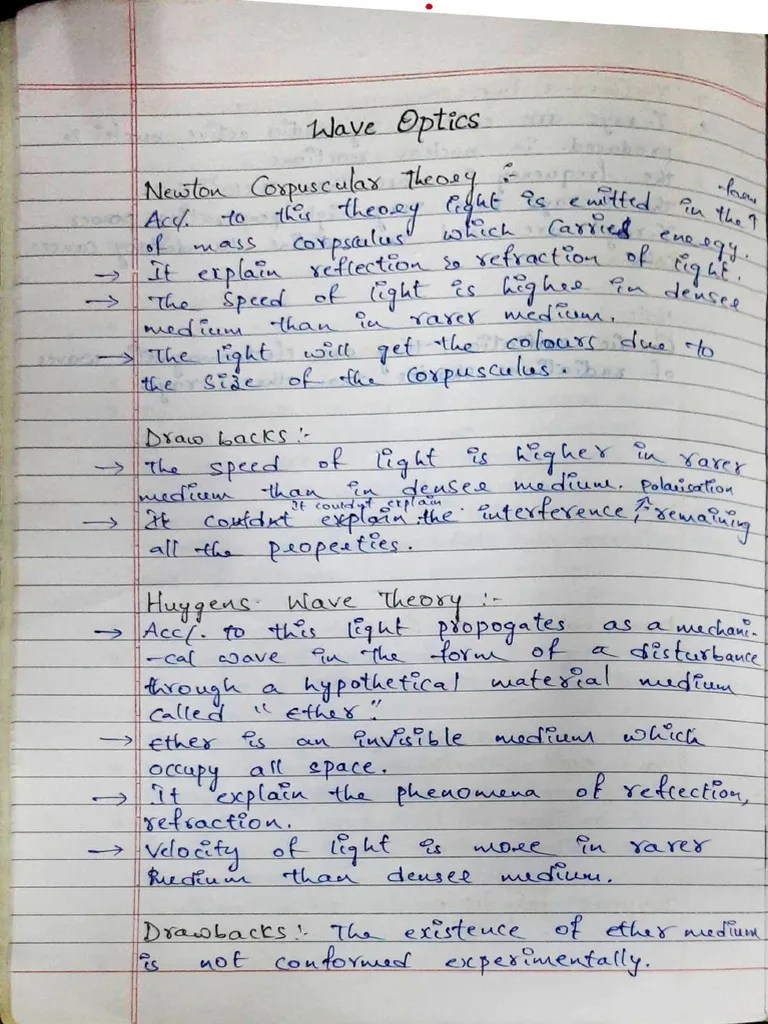 Wave Optics
Newton Corpuscular Theory :-
Acc/. to this theory light is emitted in the form
of mass corpsculus which carried energy.
→ It explain reflection & refraction of light.
→ The speed of light is higher in denser
medium than in rarer medium.
→ The light will get the colours due to
the size of the corpusculus.
Draw backs :-
→ The speed of light is higher in rarer
medium than in denser medium. polarisation
It couldn't explain
→ It couldnt explain the interference, remaining
all the properties.
Huygens Wave Theory :-
→ Acc/. to this light propogates as a mechani-
-cal wave in the form of a disturbance
through a hypothetical material medium
called "Ether".
→ Ether is an invisible medium which
occupy all space.
→ It explain the phenomena of reflection,
refraction.
→ Velocity of light is more in rarer
medium than denser medium.
Drawbacks :- The existence of ether medium
is not conformed experimentally.